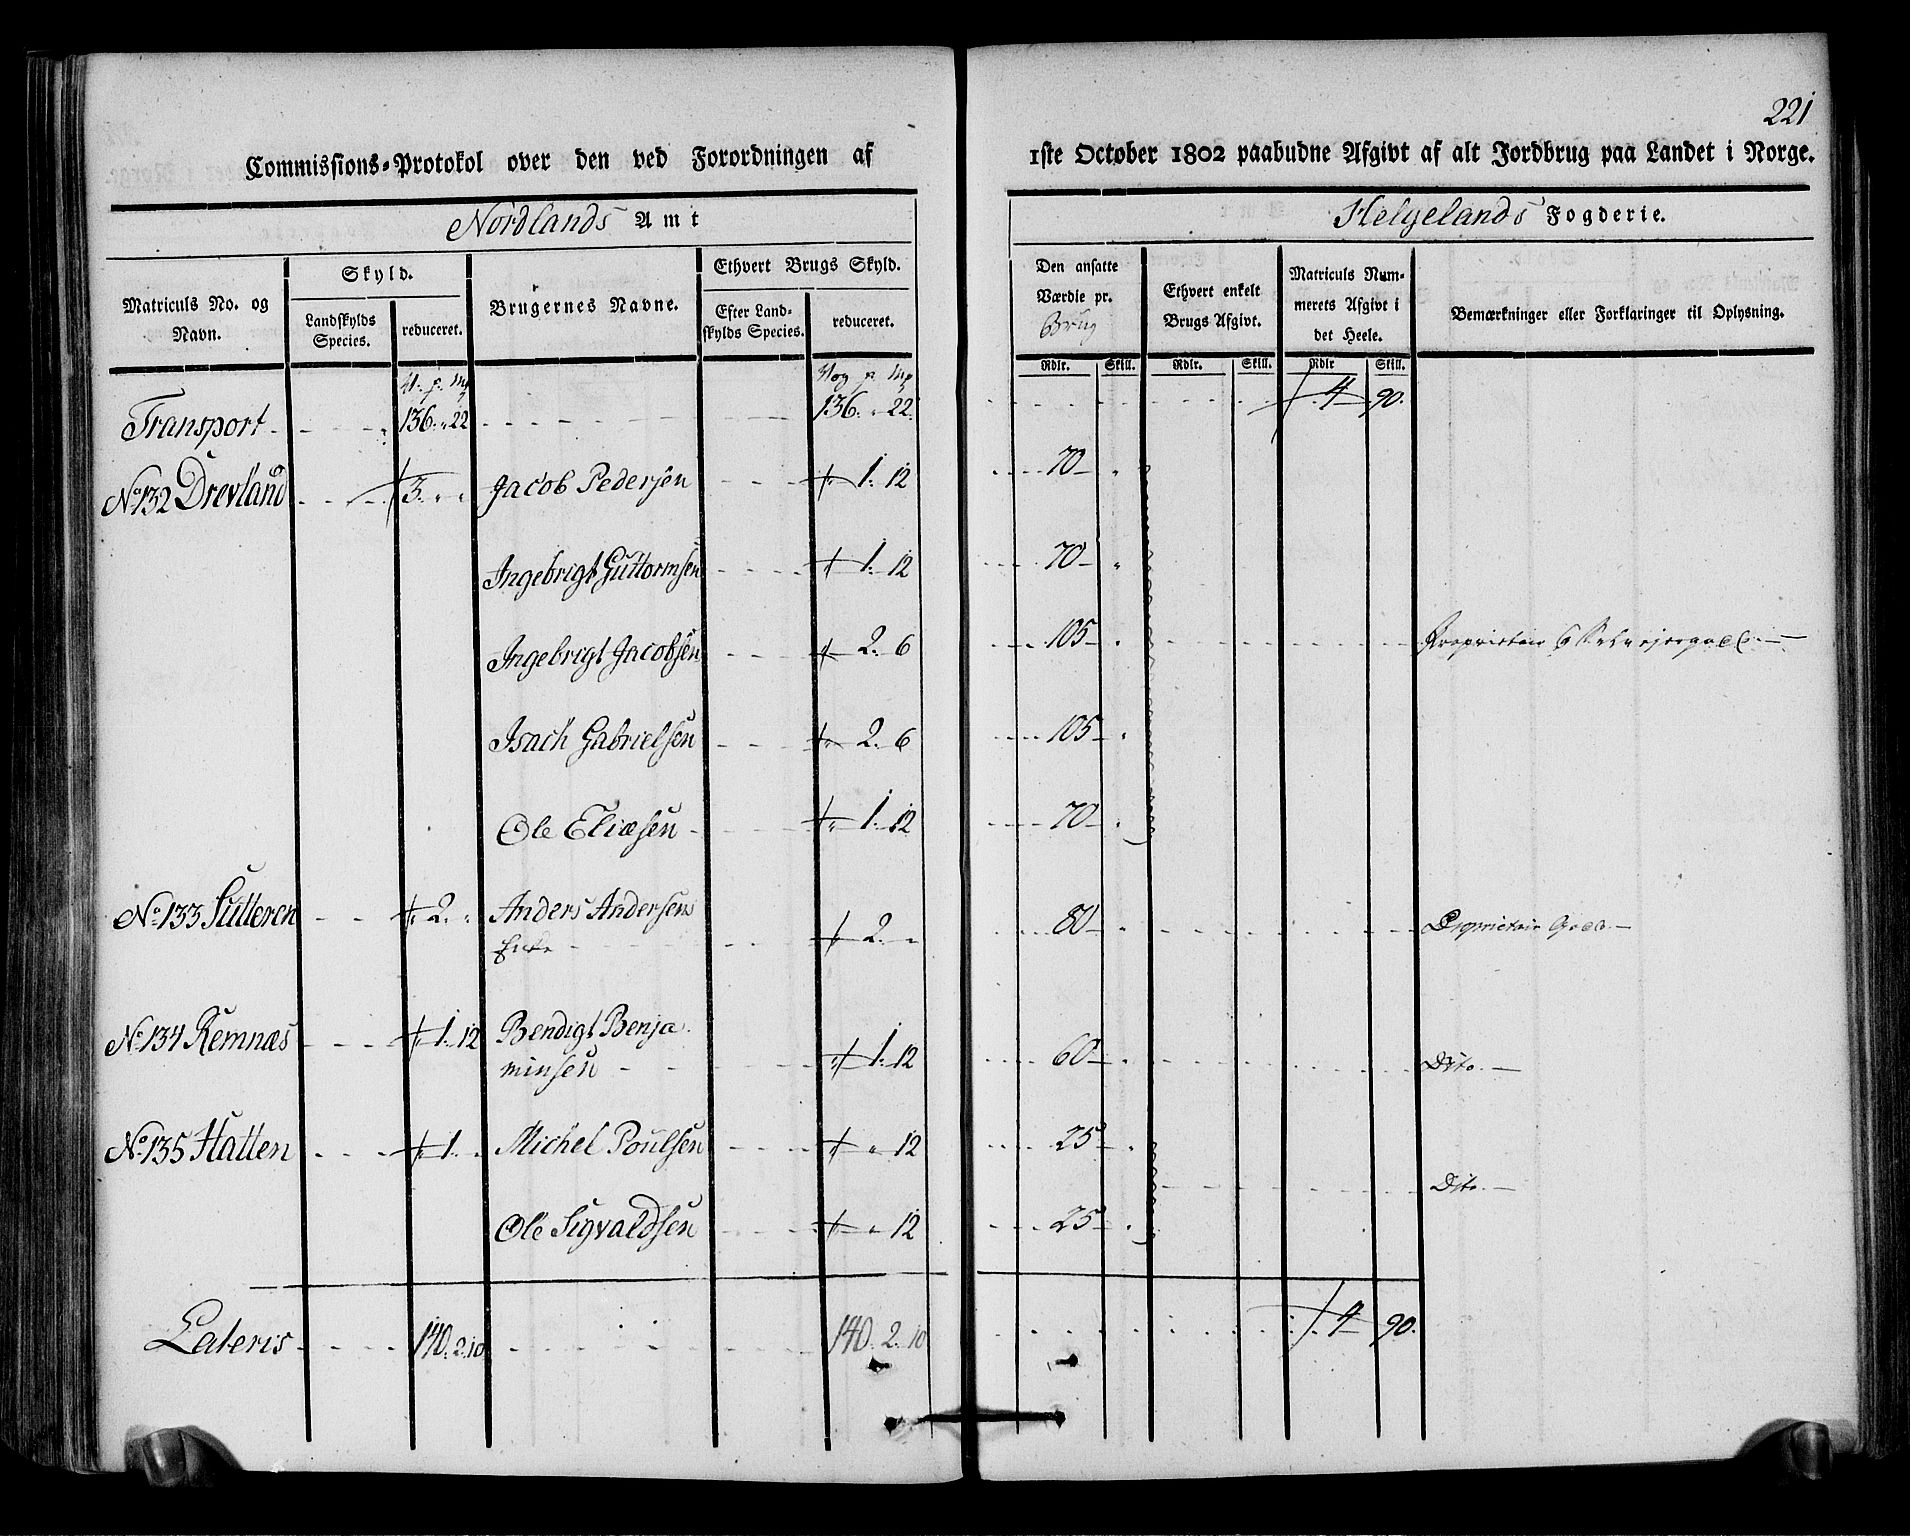 221
Commissions-Protokol over den ved Forordningen af 1ste October 1802 paabudne Afgivt af alt Jordbrug paa Landet i Norge.
Nordlands Amt Helgelands Fogderie.
Matriculs No. og Navn.
Skyld.
Landskylds Species.
reduceret.
Brugernes Navne.
Ethvert Brugs Skyld.
Efter Landskylds Species.
reduceret.
Den ansatte Værdie pr. Brug
Rdlr. Skill.
Ethvert enkelt Brugs Afgivt.
Rdlr. Skill.
Matriculs Nummerets Afgivt i det Heele.
Rdlr Skill.
Bemærkninger eller Forklaringer til Oplysning.
V. p. Mp Vog p. Mp
Transport 136. " 22 136. " 22. 4 90.
No 132 Drevland 3. " " Jacob Pedersen " 1. 12 70 "
Ingebrigt Guttormsen " 1. 12 70 "
Ingebrigt Jacobsen " 2. 6 105 " Proprietair
Isach Gabrielsen " 2. 6 105 "
Ole Eliæsen " 1. 12 70 "
No 133 Sutteren " 2. " Anders Andersens
" 2. " 80 " Proprietair Gods.
No 134 Remnæs " 1. 12 Bendigt Benja
minsen " 1. 12 60 " Dito.
No 135 Hatten " 1. " Michel Poulsen " " 12 25 "
Dito.
Ole Sigvaldsen " " 12 25 "
Lateris 140. 2. 10 140. 2. 10 4 90.